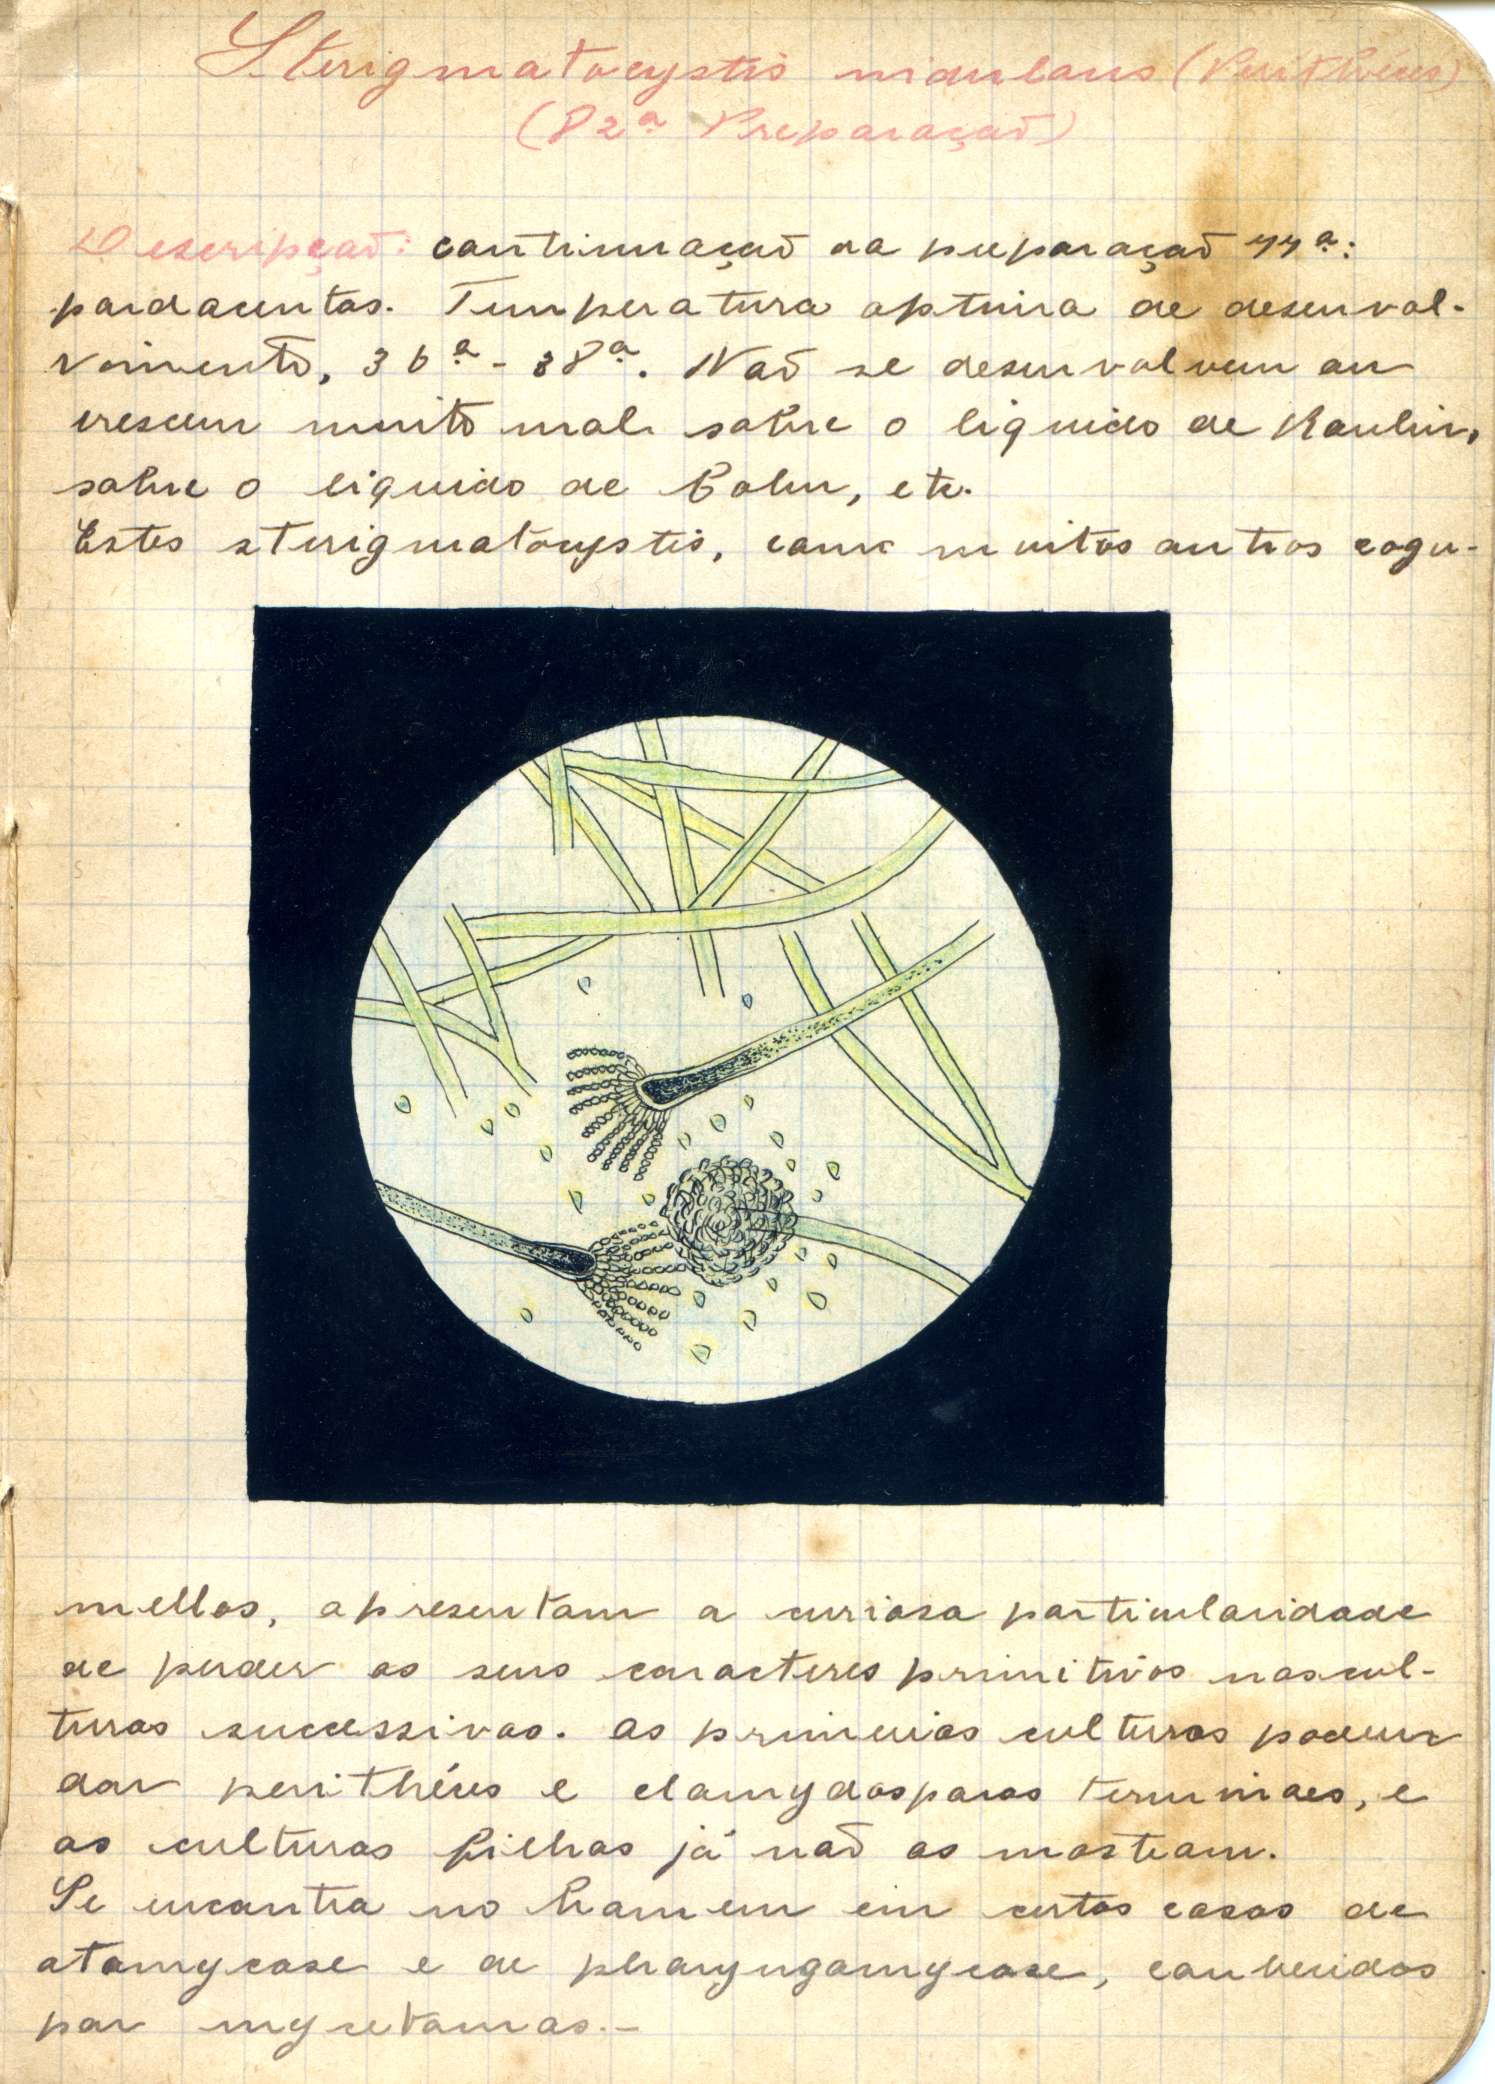 Sterigmatocystis nidulans (Perithéces)
(82ª Preparação)
Descripção: continuação da preparação 77ª:
pardacentas. Temperatura optima de desenvol-
vimento, 36ª - 38ª. Não se desenvolvem ou
crescem muito mal sobre o liquido de Raulin,
sobre o liquido de Cohn, etc.
Estes sterigmatocystis, como muitos outros cogu-
mellos, apresentam a curiosa particularidade
de perder os seus caracteres primitivos nas cul-
turas successivas. As primeiras culturas podem
dar perithéces e clamydosporos terminaes, e
as culturas filhas já não os mostram.
Se encontra no homem em certos casos de
otomycose e de pharyngomycose, conhecidos
por mycetomas.-